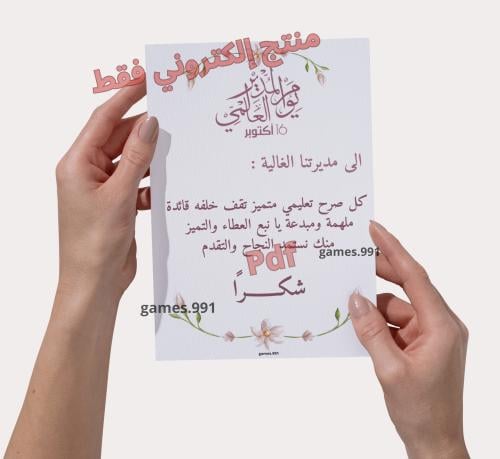 منتج إلكتروني فقط
يوم المدير
العالمي
16 أكتوبر
الى مديرتنا الغالية :
كل صرح تعليمي متميز تقف خلفه قائدة
ملهمة ومبدعة يا نبع العطاء والتميز
منك نستمد النجاح والتقدم
games.991
Pdf
شكــــراً
games.991
games.991